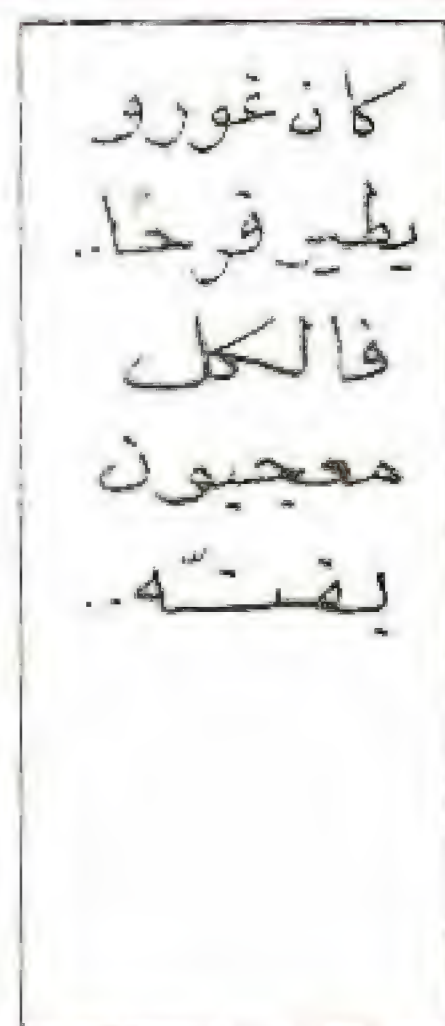 كان غورو
يطير فرحًا..
فالكل
معجبون
بفنّه..